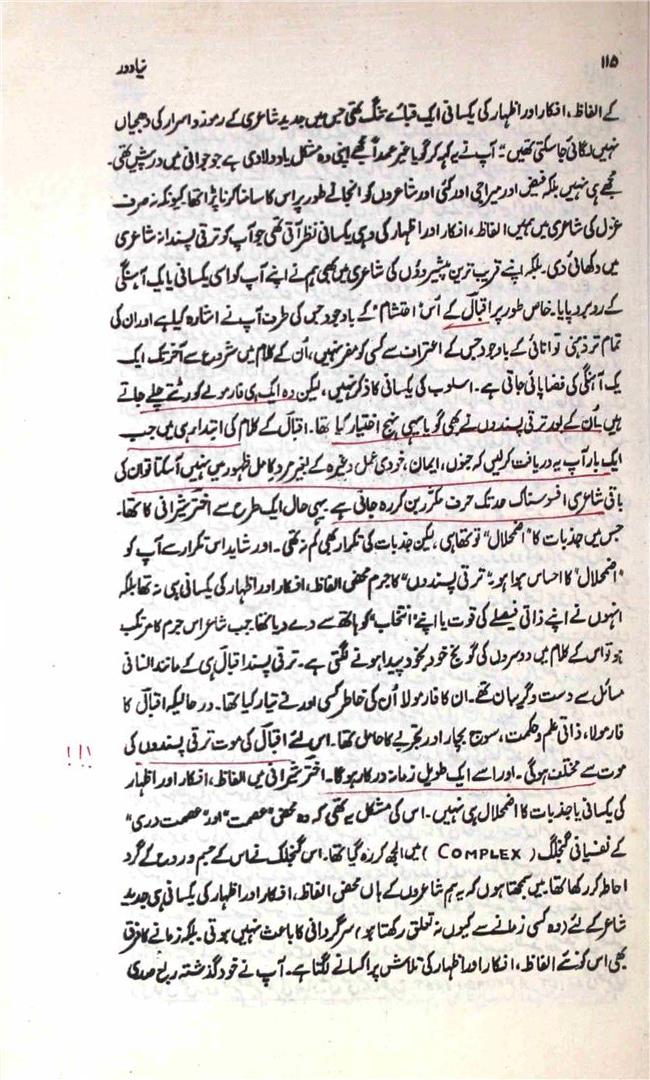 ۱۱۵
نیا دور
کے الفاظ، افکار اور اظہار کی یکسانی ایک قبائے تنگ تھی جس میں جدید شاعری کے رموز و اسرار کی دھجیاں
نہیں لگائی جا سکتی تھیں“۔ آپ نے یہ کہہ کر گویا غیر عمداً مجھے اپنی وہ مشکل یاد دلا دی ہے جو جوانی میں درپیش تھی۔
مجھے ہی نہیں بلکہ فیض اور میراجی اور کئی اور شاعروں کو انجانے طور پر اس کا سامنا کرنا پڑا تھا کیونکہ نہ صرف
غزل کی شاعری میں ہمیں الفاظ، افکار اور اظہار کی وہی یکسانی نظر آتی تھی جو آپ کو ترقی پسندانہ شاعری
میں دکھائی دی۔ بلکہ اپنے قریب ترین پیشیروؤں کی شاعری میں بھی ہم نے اپنے آپ کو اسی یکسانی یا یک آہنگی
کے روبرو پایا۔ خاص طور پر اقبالؔ کے اُس ”احتشام“ کے باوجود جس کی طرف آپ نے اشارہ کیا ہے اور ان کی
تمام تر ذہنی توانائی کے باوجود جس کے اعتراف سے کسی کو مفر نہیں، اُن کے کلام میں شروع سے آخر تک ایک
یک آہنگی کی فضا پائی جاتی ہے۔ اسلوب کی یکسانی کا ذکر نہیں، لیکن وہ ایک ہی فارمولے کو رٹتے چلے جاتے
ہیں۔ اُن کے بعد ترقی پسندوں نے بھی گویا یہی نہج اختیار کیا تھا۔ اقبالؔ کے کلام کی ابتدا ہی میں جب
ایک بار آپ یہ دریافت کر لیں کہ جنوں، ایمان، خودی عمل وغیرہ کے بغیر مردِ کامل ظہور میں نہیں آسکتا تو ان کی
باقی شاعری افسوسناک حد تک حرفِ مکرّر بن کر رہ جاتی ہے۔ یہی حال ایک طرح سے اختر شیرانی کا تھا۔
جس میں جذبات کا ”اضمحلال“ تو تھا ہی، لیکن جذبات کی تکرار بھی کم نہ تھی۔ اور شاید اس تکرار سے آپ کو
”اضمحلال“ کا احساس ہوا ہو۔ ”ترقی پسندوں“ کا جرم محض الفاظ، افکار اور اظہار کی یکسانی ہی نہ تھا بلکہ
انہوں نے اپنے ذاتی فیصلے کی قوت یا اپنے ”انتخاب“ کو ہاتھ سے دے دیا تھا جب شاعر اس جرم کا مرتکب
ہو تو اس کے کلام میں دوسروں کی گونج خود بخود پیدا ہونے لگتی ہے۔ ترقی پسند اقبالؔ ہی کے مانند انسانی
مسائل سے دست و گریبان تھے۔ ان کا فارمولا اُن کی خاطر کسی اور نے تیار کیا تھا۔ درحالیکہ اقبالؔ کا
فارمولا، ذاتی علم و حکمت، سوچ بچار اور تجربے کا حامل تھا۔ اس لئے اقبالؔ کی موت ترقی پسندوں کی
!!!
موت سے مختلف ہوگی۔ اور اسے ایک طویل زمانہ درکار ہوگا۔ اختر شیرانی میں الفاظ، افکار اور اظہار
کی یکسانی یا جذبات کا اضمحلال ہی نہیں۔ اس کی مشکل یہ تھی کہ وہ محض ”عصمت“ اور ”عصمت دری“
کے نفسیاتی گنجلک ( COMPLEX ) میں الجھ کر رہ گیا تھا۔ اس گنجلک نے اس کے جسم و روح کے گرد
احاطہ کر رکھا تھا۔ میں سمجھتا ہوں کہ یہ ہم شاعروں کے ہاں محض الفاظ، افکار اور اظہار کی یکسانی ہی جدید
شاعر کے لئے (وہ کسی زمانے سے کیوں نہ تعلق رکھتا ہو) سرگردانی کا باعث نہیں ہوتی۔ بلکہ زمانے کا فرق
بھی اس کو نئے الفاظ، افکار اور اظہار کی تلاش پر اکسانے لگتا ہے۔ آپ نے خود گذشتہ ربع صدی